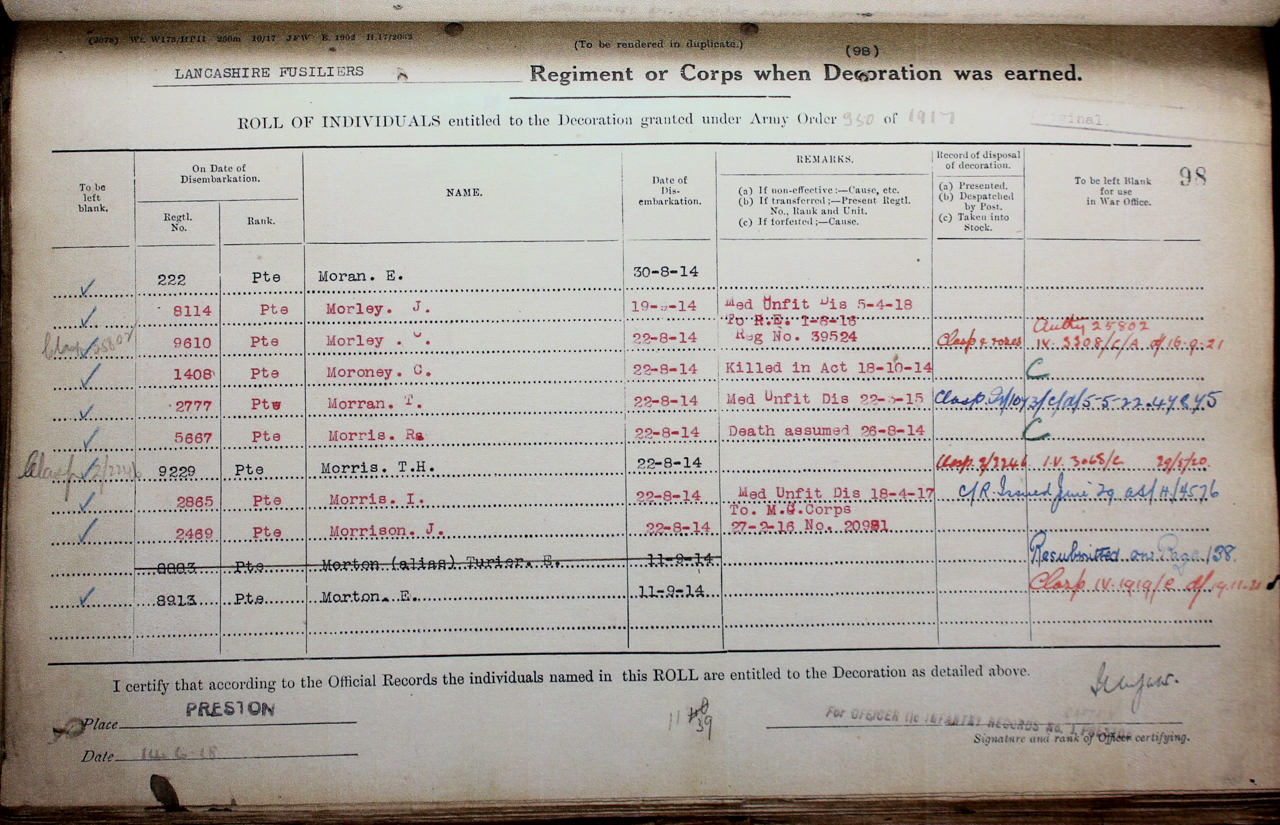 (2078) Wt. W173/HP11 250m 10/17 JFW E. 1902 H.17/2052
(To be rendered in duplicate.)
(98)
LANCASHIRE FUSILIERS
Regiment or Corps when Decoration was earned.
ROLL OF INDIVIDUALS entitled to the Decoration granted under Army Order 350 of 1917
98
To be left blank.
On Date of Disembarkation.
Regtl. No.
Rank.
NAME.
Date of Dis-embarkation.
REMARKS.
(a) If non-effective :—Cause, etc.
(b) If transferred ;—Present Regtl. No., Rank and Unit.
(c) If forfeited ;—Cause.
Record of disposal of decoration.
(a) Presented.
(b) Despatched by Post.
(c) Taken into Stock.
To be left Blank for use in War Office.
222 Pte Moran. E. 30-8-14
8114 Pte Morley. J. Med Unfit Dis 5-4-18
To R.E. 1-8-16
Clasp 9610 Pte Morley . 22-8-14 Reg No. 39524 Clasp & roses Authy 25802
IV. 3308/C/A df 16.9.21
1408 Pte Moroney. C. 22-8-14 Killed in Act 18-10-14 C
2777 Pte Morran. T. 22-8-14 Med Unfit Dis Clasp
5667 Pte Morris. R 22-8-14 Death assumed 26-8-14 C
Clasp 2/2246 9229 Pte Morris. T.H. 22-8-14 Clasp 2/2246 I.V. 3068/C 29/5/20
2865 Pte Morris. I. 22-8-14 Med Unfit Dis 18-4-17 C/R. Issued June 29
To. M.G.Corps
2469 Pte Morrison. J. 22-8-14 27-2-16 No. 20981
8803 Pte Morton (alias) Turier. E. 11-9-14 Resubmitted on Page 138
8913 Pte Morton. E. 11-9-14 Clasp IV. 1919/C df
I certify that according to the Official Records the individuals named in this ROLL are entitled to the Decoration as detailed above.
Place PRESTON
Date 14-6-18
11
39
For OFFICER i/c INFANTRY RECORDS No. 1
Signature and rank of Officer certifying.